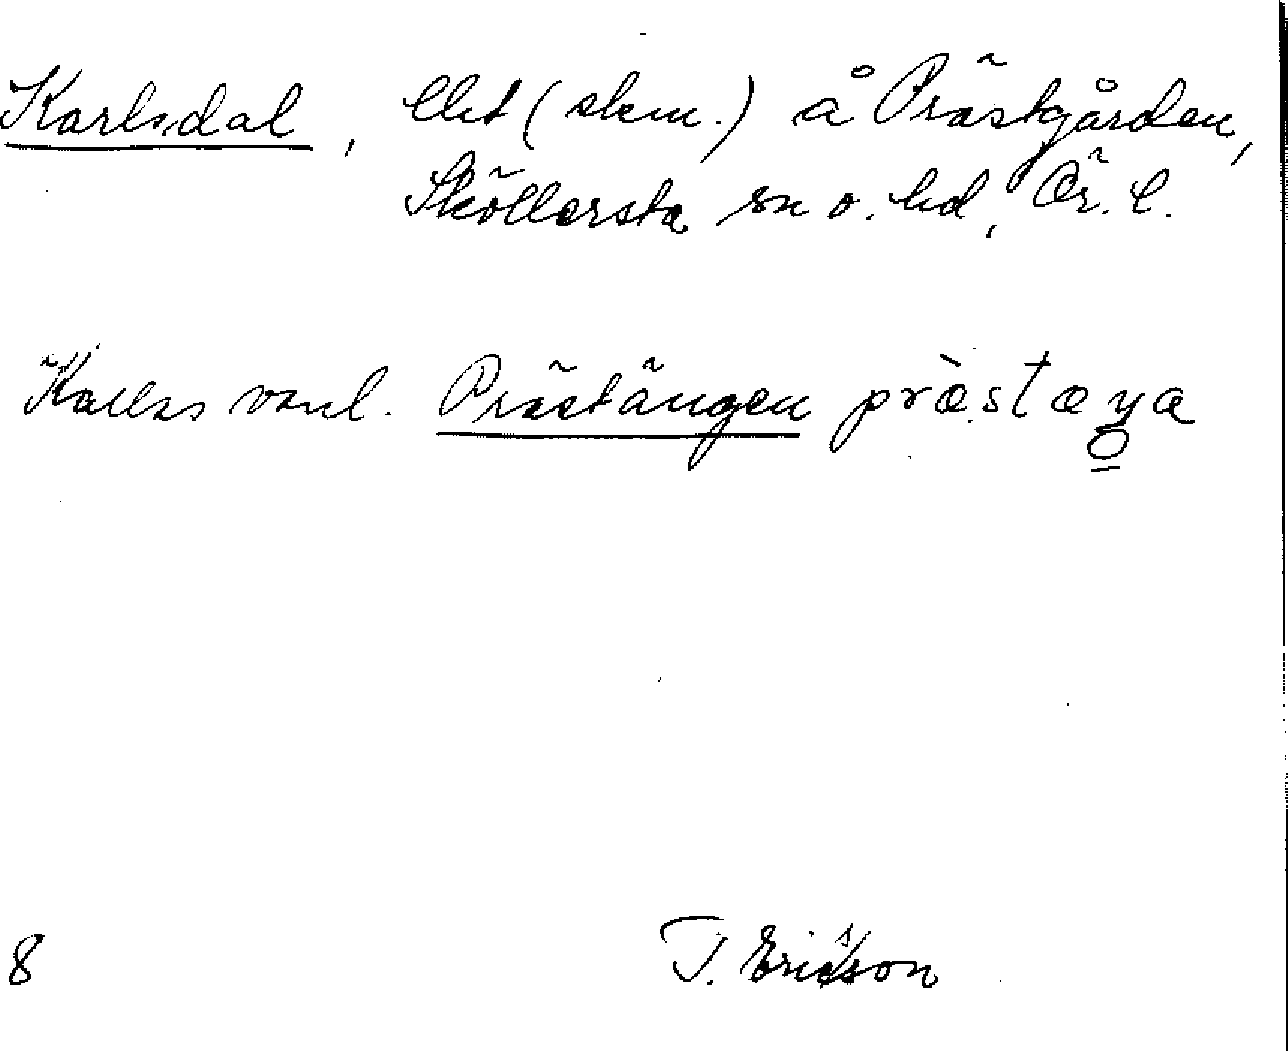 Karlsdal, lht (skm.) å Prästgården,
Sköllersta sn o. hd, Ör. l.
Kallas vanl. Prästängen prὰstæŋa
8 T. Ericsson